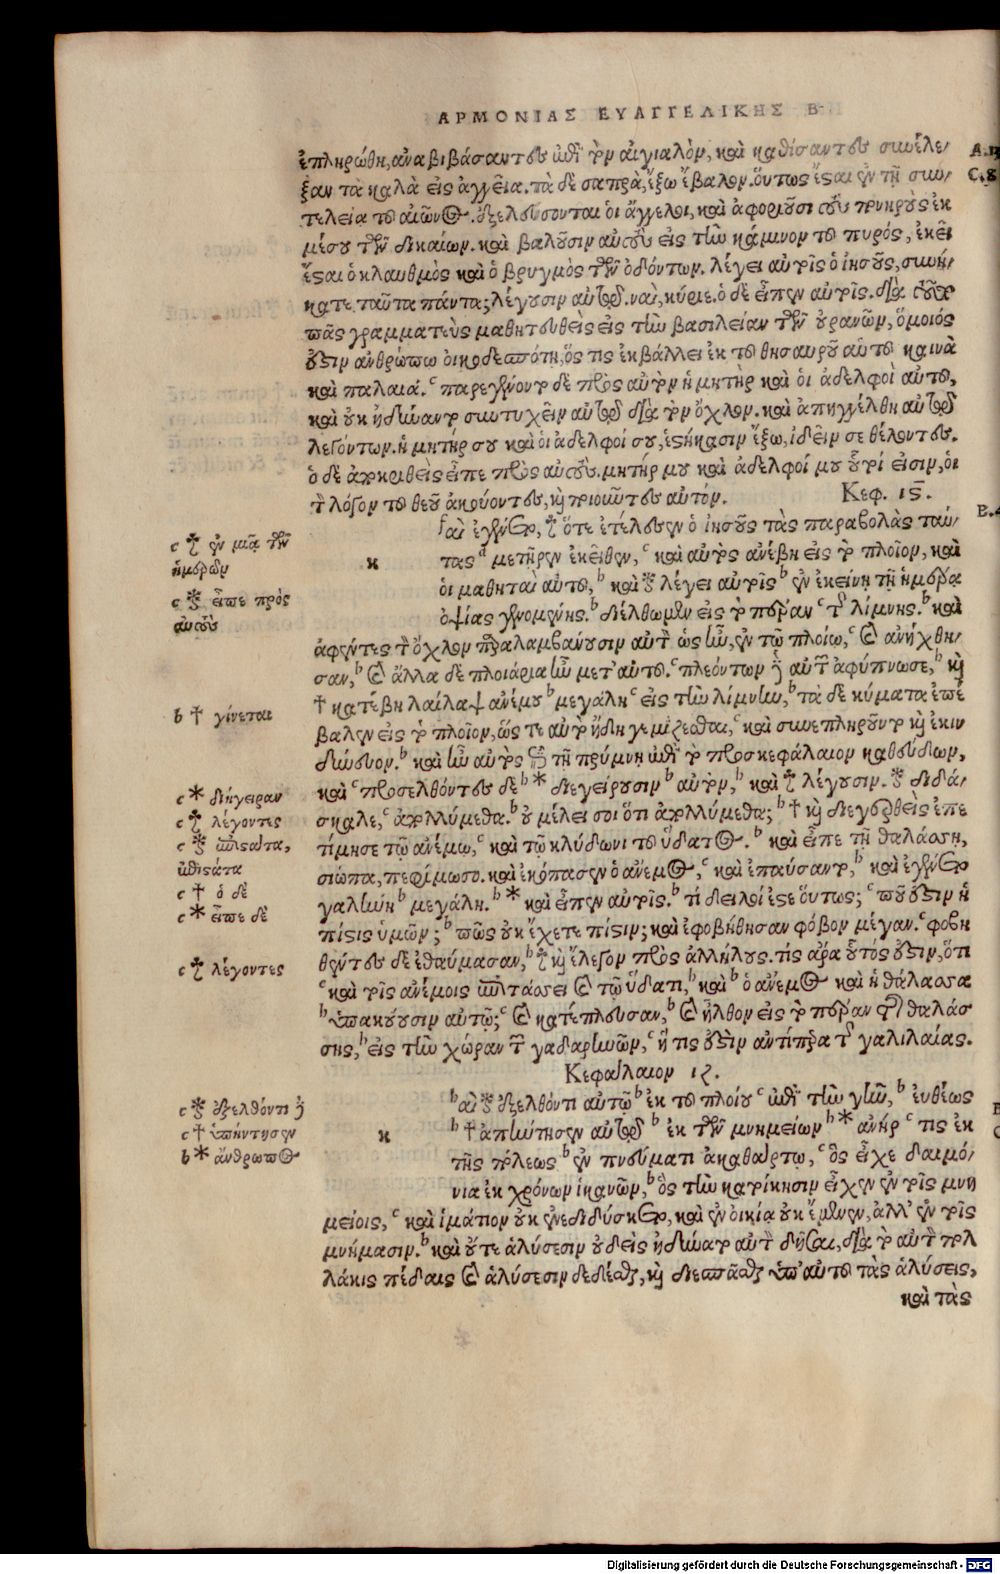 ΑΡΜΟΝΙΑΣ ΕΥΑΓΓΕΛΙΚΗΣ Β
ἐπληρώθη, ἀναβιβάσαντες ἐπὶ τὸν αἰγιαλὸν, καὶ καθίσαντες συνέλε/
ξαν τὰ καλὰ εἰς ἀγγεῖα. τὰ δὲ σαπρὰ, ἔξω ἔβαλον. οὕτως ἔσαι ἐν τῇ συν/
τελείᾳ τοῦ αἰῶνος. ἐξελεύσονται οἱ ἄγγελοι, καὶ ἀφοριοῦσι τοὺς πονηροὺς ἐκ
μέσου τῶν δικαίων. καὶ βαλοῦσιν αὐτοὺς εἰς τὴν κάμινον τοῦ πυρός, ἐκεῖ
ἔσαι ὁ κλαυθμὸς καὶ ὁ βρυγμὸς τῶν ὀδόντων. λέγει αὐτοῖς ὁ ἰησοῦς, συνή/
κατε ταῦτα πάντα; λέγουσιν αὐτῷ. ναὶ, κύριε. ὁ δὲ εἶπεν αὐτοῖς. διὰ τοῦτο
πᾶς γραμματεὺς μαθητευθεὶς εἰς τὴν βασιλείαν τῶν οὐρανῶν, ὅμοιός
ἐστιν ἀνθρώπῳ οἰκοδεσπότῃ, ὅς τις ἐκβάλλει ἐκ τοῦ θησαυροῦ αὑτοῦ καινὰ
καὶ παλαιά. c παρεγένοντο δὲ πρὸς αὐτὸν ἡ μητὴρ καὶ οἱ ἀδελφοὶ αὐτοῦ,
καὶ οὐκ ἠδύναντο συντυχεῖν αὐτῷ διὰ τὸν ὄχλον. καὶ ἀπηγγέλθη αὐτῷ
λεγόντων. ἡ μητήρ σου καὶ οἱ ἀδελφοί σου, ἑστήκασιν ἔξω, ἰδεῖν σε θέλοντες.
ὁ δὲ ἀποκριθεὶς εἶπε πρὸς αὐτούς. μητήρ μου καὶ ἀδελφοί μου οὗτοί εἰσιν, οἱ
τὸν λόγον τοῦ θεοῦ ἀκούοντες, καὶ ποιοῦντες αὐτόν. Κεφ. ιϛ.
καὶ ἐγένετο, ☧ ὅτε ἐτέλεσεν ὁ ἰησοῦς τὰς παραβολὰς ταύ/
κ τας a μετῆρεν ἐκεῖθεν, c καὶ αὐτὸς ἀνέβη εἰς τὸ πλοῖον, καὶ
οἱ μαθηταὶ αὐτοῦ, b καὶ λέγει αὐτοῖς b ἐν ἐκείνῃ τῇ ἡμέρᾳ
ὀψίας γενομένης. b διέλθωμεν εἰς τὸ πέραν c τῆς λίμνης. b καὶ
ἀφέντες τὸν ὄχλον παραλαμβάνουσιν αὐτὸν ὡς ἦν, ἐν τῷ πλοίῳ, c καὶ ἀνήχθη/
σαν, b καὶ ἄλλα δὲ πλοιάρια ἦν μετ' αὐτοῦ. c πλεόντων δὲ αὐτῶν ἀφύπνωσε, b καὶ
† κατέβη λαίλαψ ἀνέμου b μεγάλη c εἰς τὴν λίμνην, b τὰ δὲ κύματα ἐπέ
βαλεν εἰς τὸ πλοῖον, ὥς τε αὐτὸ ἤδη γεμίζεσθαι, c καὶ συνεπληροῦντο καὶ ἐκιν
δύνευον. b καὶ ἦν αὐτὸς ἐπὶ τῇ πρύμνῃ ἐπὶ τὸ προσκεφάλαιον καθεύδων,
καὶ c προσελθόντες δὲ b * διεγείρουσιν b αὐτὸν, b καὶ λέγουσιν. διδά/
σκαλε, c ἀπολλύμεθα. b οὐ μέλει σοι ὅτι ἀπολλύμεθα; b † καὶ διεγερθεὶς ἐπε
τίμησε τῷ ἀνέμῳ, c καὶ τῷ κλύδωνι τοῦ ὕδατος. b καὶ εἶπε τῇ θαλάσσῃ,
σιώπα, πεφίμωσο. καὶ ἐκόπασεν ὁ ἄνεμος, c καὶ ἐπαύσαντο, b καὶ ἐγένετο
γαλήνη b μεγάλη. b * καὶ εἶπεν αὐτοῖς. b τί δειλοί ἐστε οὕτως; c ποῦ ἐστιν ἡ
πίστις ὑμῶν; b πῶς οὐκ ἔχετε πίστιν; καὶ ἐφοβήθησαν φόβον μέγαν. c φοβη
θέντες δὲ ἐθαύμασαν, b καὶ ἔλεγον πρὸς ἀλλήλους. τίς ἄρα οὗτός ἐστιν, ὅτι
c καὶ τοῖς ἀνέμοις ἐπιτάσσει καὶ τῷ ὕδατι, b καὶ b ὁ ἄνεμος καὶ ἡ θάλασσα
b ὑπακούουσιν αὐτῷ; c καὶ κατέπλευσαν, b καὶ ἦλθον εἰς τὸ πέραν τῆς θαλάσ
σης, b εἰς τὴν χώραν τῶν γαδαρηνῶν, c ἥ τις ἐστὶν ἀντίπερα τῆς γαλιλαίας.
Κεφάλαιον ιζ.
b καὶ ἐξελθόντι αὐτῷ b ἐκ τοῦ πλοίου c ἐπὶ τὴν γῆν, b εὐθέως
κ b † ἀπήντησεν αὐτῷ b ἐκ τῶν μνημείων b * ἀνήρ c τις ἐκ
τῆς πόλεως b ἐν πνεύματι ἀκαθάρτῳ, c ὃς εἶχε δαιμό/
νια ἐκ χρόνων ἱκανῶν, b ὃς τὴν κατοίκησιν εἶχεν ἐν τοῖς μνη
μείοις, c καὶ ἱμάτιον οὐκ ἐνεδιδύσκετο, καὶ ἐν οἰκίᾳ οὐκ ἔμενεν, ἀλλ' ἐν τοῖς
μνήμασιν. b καὶ οὔτε ἁλύσεσιν οὐδεὶς ἠδύνατο αὐτὸν δῆσαι, διὰ τὸ αὐτὸν πολ
λάκις πέδαις καὶ ἁλύσεσιν δεδέσθαι, καὶ διεσπᾶσθαι ὑπ' αὐτοῦ τὰς ἁλύσεις,
καὶ τὰς
c ἐν μιᾷ τῶν
ἡμερῶν
c εἶπε πρὸς
αὐτοὺς
b † γίνεται
c * διήγειραν
c λέγοντες
c ἐπιστάτα,
ἐπιστάτα
c † ὁ δὲ
c * εἶπε δὲ
c λέγοντες
c ἐξελθόντι δὲ
c † ὑπήντησεν
b * ἄνθρωπος
C.8
Digitalisierung gefördert durch die Deutsche Forschungsgemeinschaft - DFG